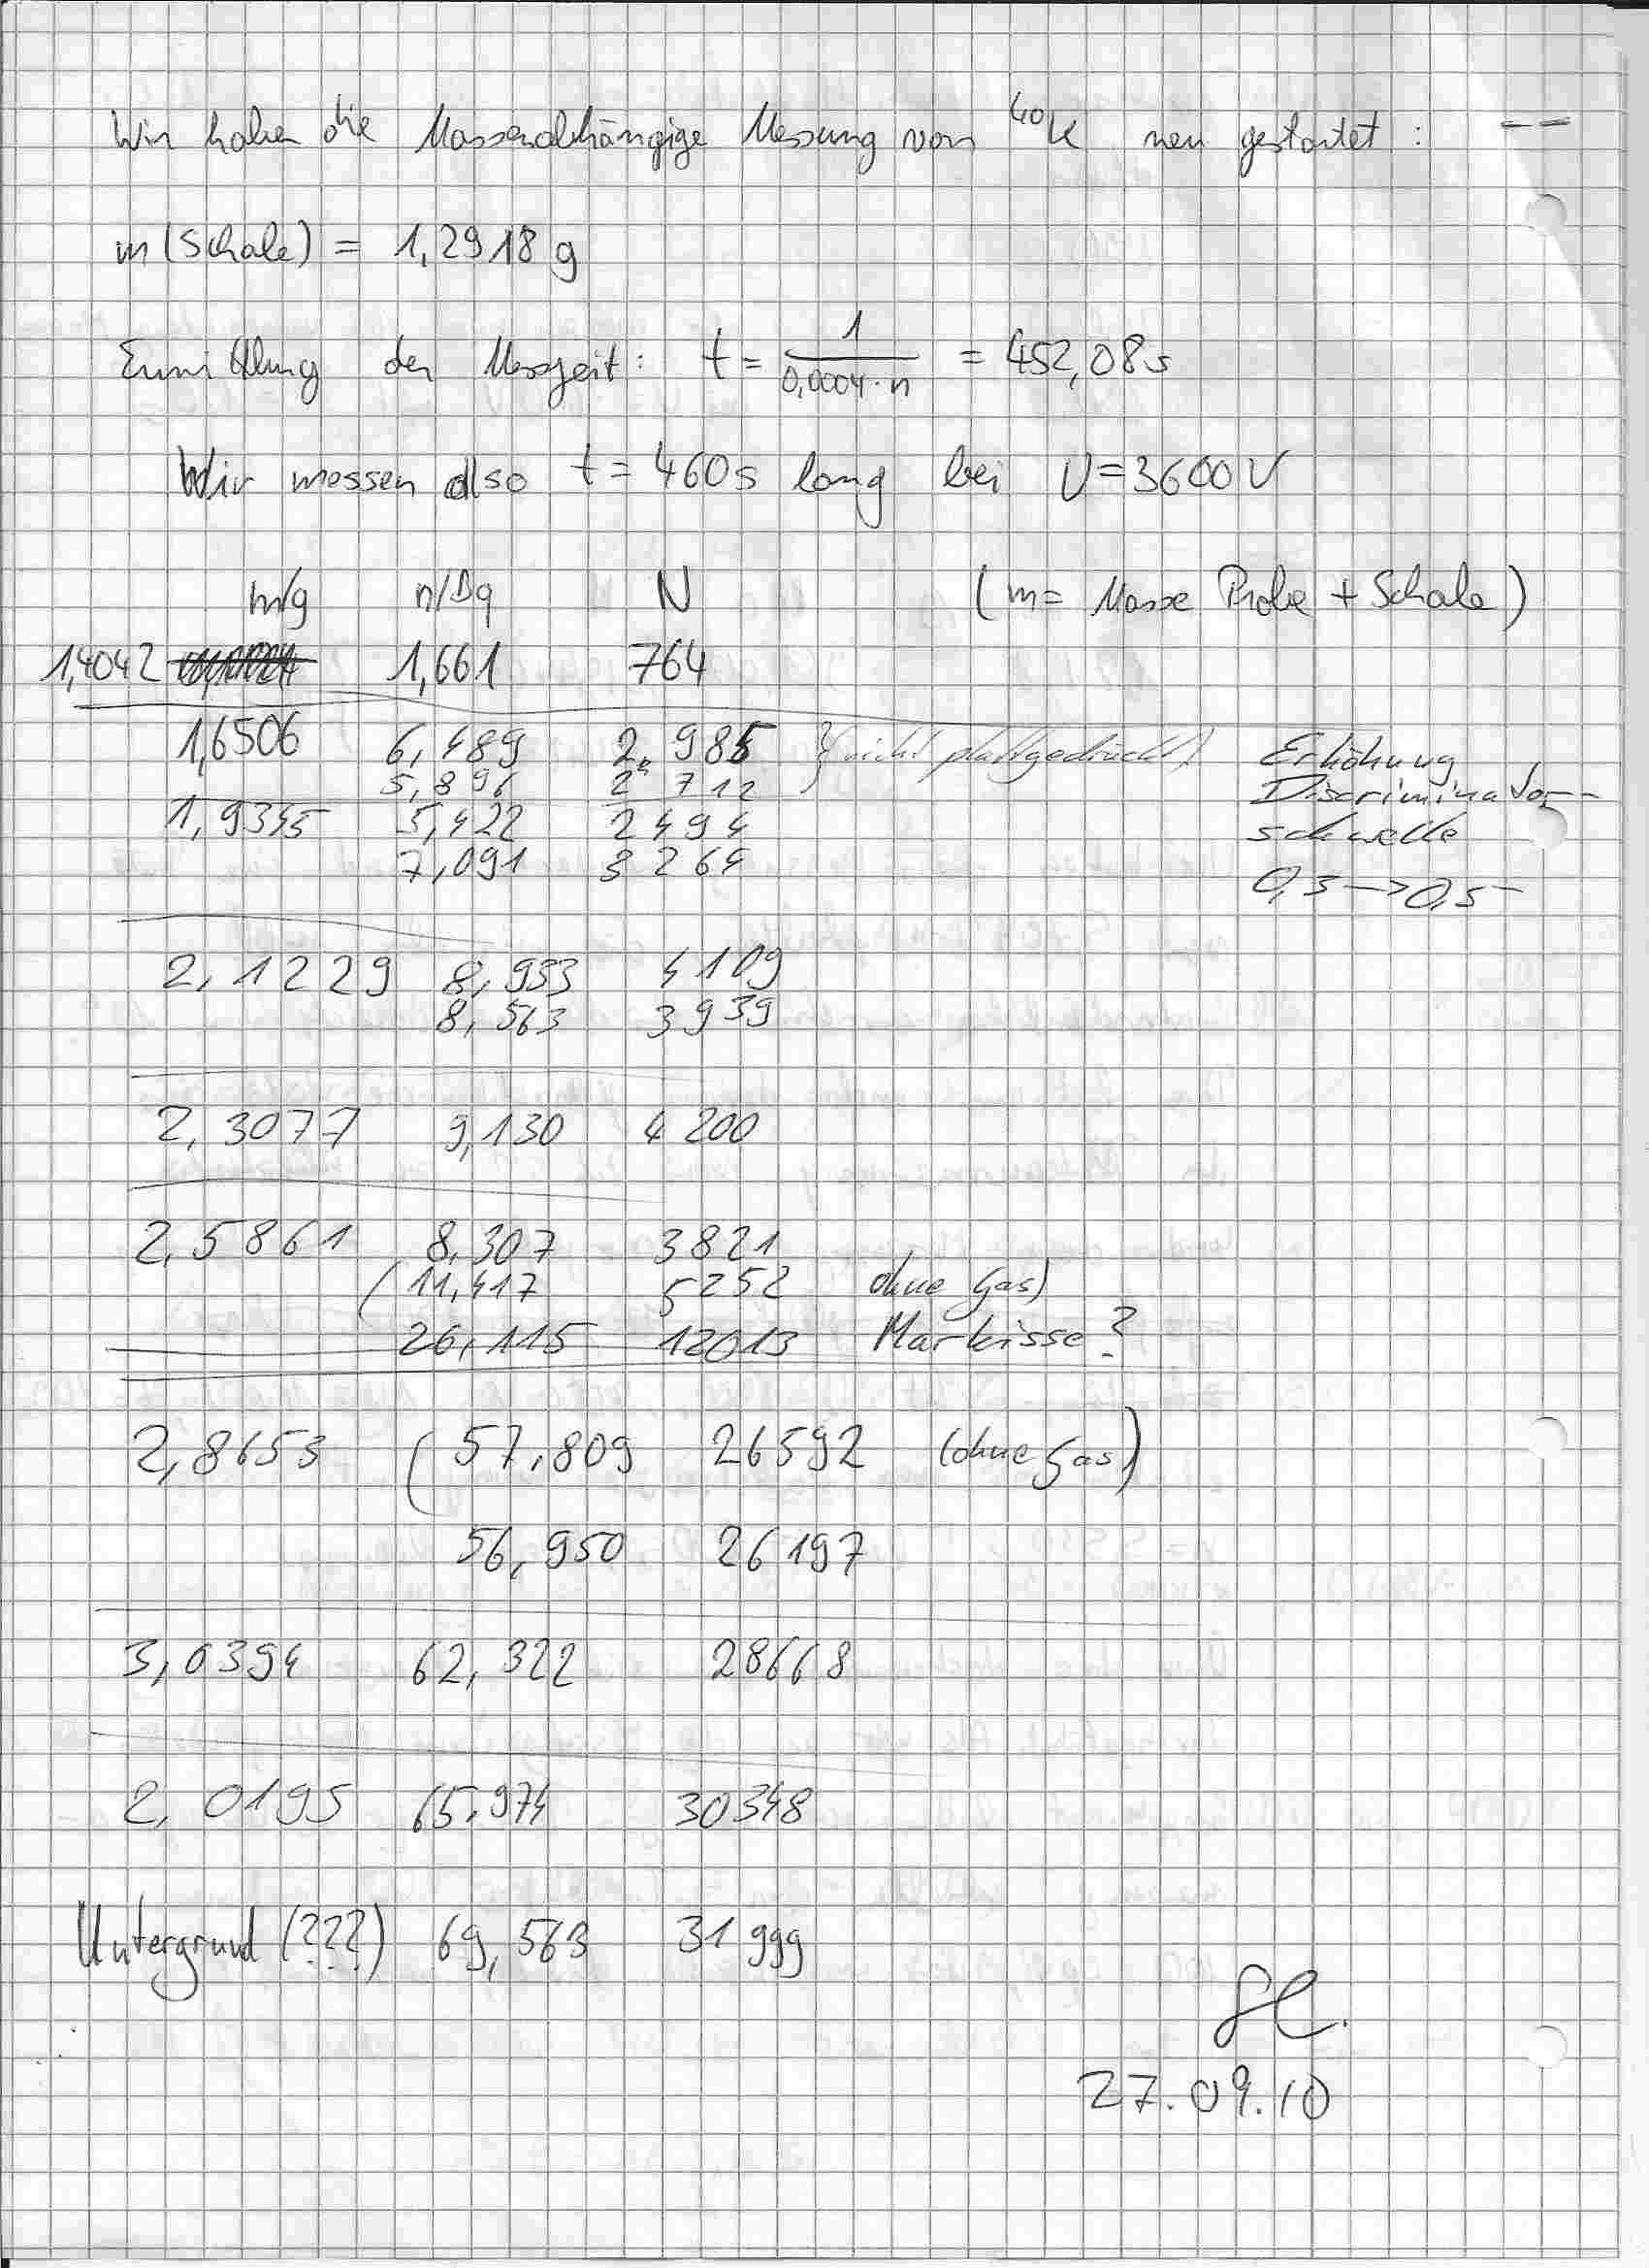 Wir haben die Massenabhängige Messung von ⁴⁰K neu gestartet :
m (Schale) = 1,2918 g
Ermittlung der Messzeit: t = 1 / 0,0004 · n = 452,08 s
Wir messen also t = 460 s lang bei U = 3600 V
m/g n/Bq N (m = Masse Probe + Schale)
1,4042 1,661 764
1,6506 6,489 2985 } (nicht plattgedrückt) Erhöhung
5,896 2712 Discriminator-
1,9345 5,422 2494 schwelle
7,091 3264 0,3 → 0,5
2,1229 8,933 4109
8,563 3939
2,3077 9,130 4200
2,5861 8,307 3821
(11,417 5252 ohne Gas)
26,115 12013 Markisse?
2,8653 (57,809 26592 (ohne Gas)
56,950 26197
3,0394 62,322 28668
2,0195 65,974 30348
Untergrund (???) 69,563 31999
27.09.10